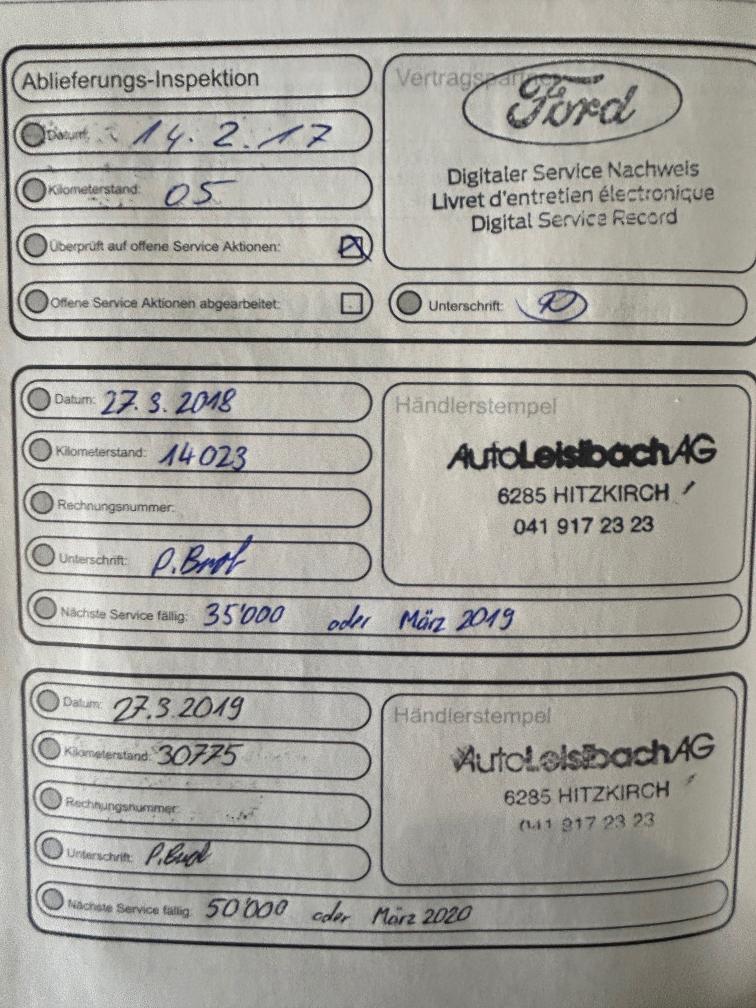 Ablieferungs-Inspektion
Datum: 14.2.17
Kilometerstand: 05
Überprüft auf offene Service Aktionen:
Offene Service Aktionen abgearbeitet:
Vertragspartner
Ford
Digitaler Service Nachweis
Livret d'entretien électronique
Digital Service Record
Unterschrift:
Datum: 27.3.2018
Kilometerstand: 14023
Rechnungsnummer:
Unterschrift:
Nächste Service fällig: 35'000 oder März 2019
Händlerstempel
AutoLeisibachAG
6285 HITZKIRCH
041 917 23 23
Datum: 27.3.2019
Kilometerstand: 30775
Rechnungsnummer:
Unterschrift:
Nächste Service fällig: 50'000 oder März 2020
Händlerstempel
AutoLeisibachAG
6285 HITZKIRCH
041 917 23 23